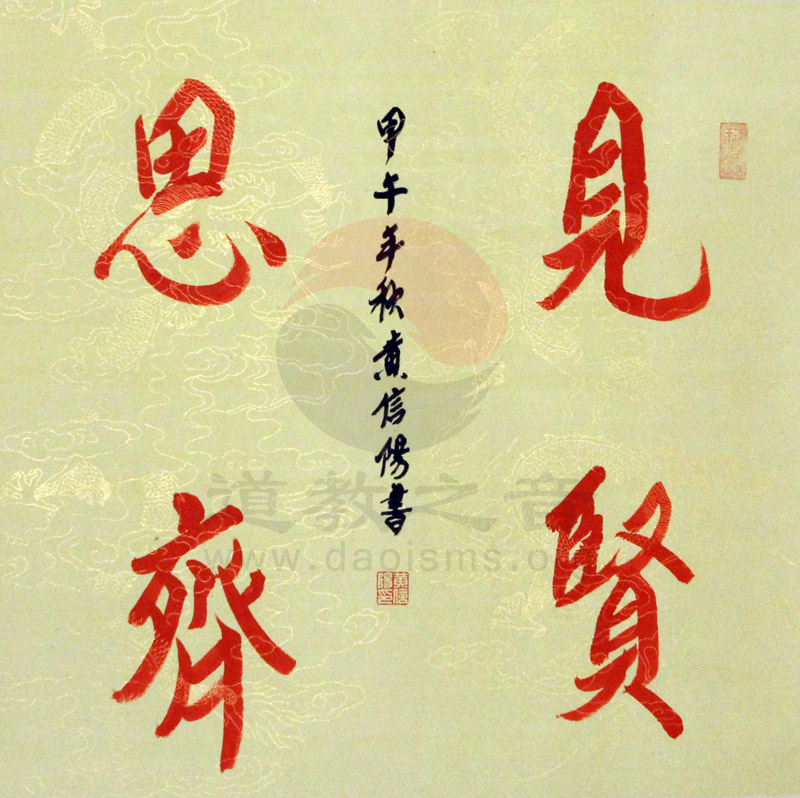 見賢
思齊
甲午年秋黄信陽書
道教之音
www.daoisms.org